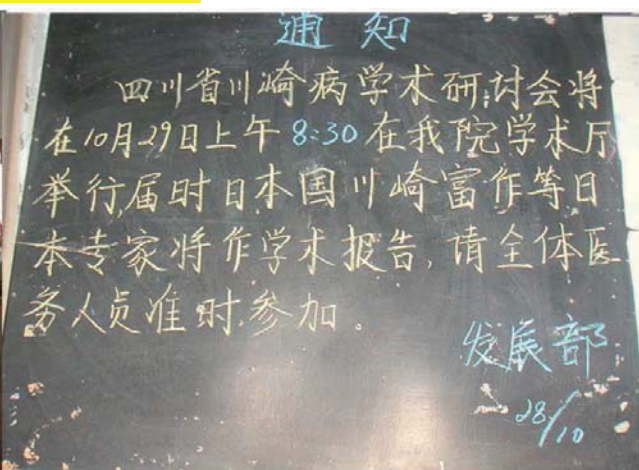 通知
四川省川崎病学术研讨会将
在10月29日上午 8:30 在我院学术厅
举行,届时日本国川崎富作等日
本专家将作学术报告,请全体医
务人员准时参加。
发展部
28/10